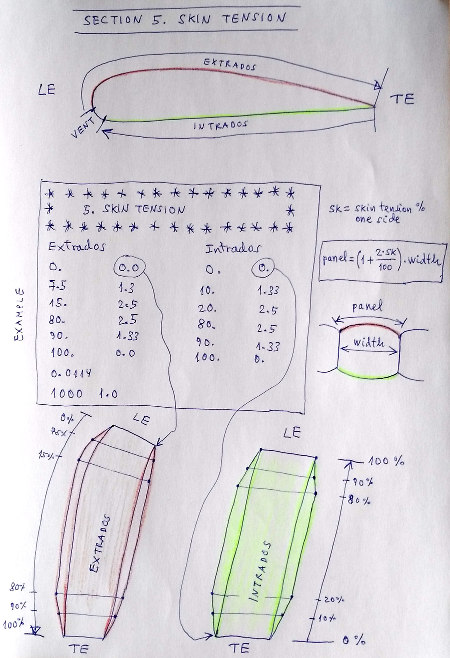 SECTION 5. SKIN TENSION
EXTRADOS
LE
TE
VENT
INTRADOS
* * * * * * * * * * * * * *
* 5. SKIN TENSION *
* * * * * * * * * * * * * *
Extrados Intrados
0. 0.0 0. 0.
7.5 1.3 10. 1.33
15. 2.5 20. 2.5
80. 2.5 80. 2.5
90. 1.33 90. 1.33
100. 0.0 100. 0.
0.0114
1000 1.0
EXAMPLE
SK = skin tension %
one side
panel = (1 + 2·SK/100) · width
panel
width
0%
7.5%
15%
80%
90%
100%
LE
EXTRADOS
TE
LE
INTRADOS
TE
100 %
90%
80%
20%
10%
0 %